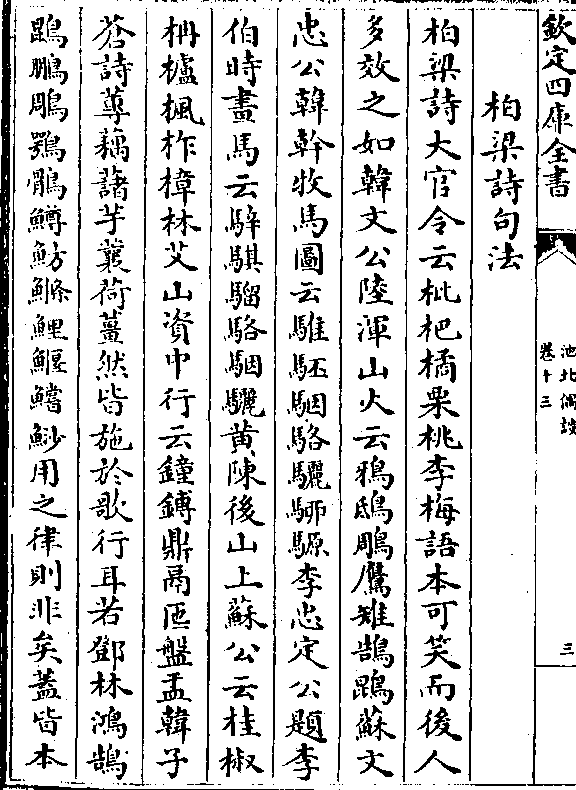 欽定四庫全書
池北偶談
卷十三
三
柏梁詩句法
柏梁詩大官令云枇杷橘栗桃李梅語本可笑而後人
多效之如韓文公陸渾山火云鴉鴟鵰鷹雉鵠鵾蘇文
忠公韓幹牧馬圖云騅駓駰駱驪駵騵李忠定公題李
伯時畫馬云騂騏騮駱駰驪黄陳後山上蘇公云桂椒
柟櫨楓柞樟林艾山資中行云鐘鎛鼎鬲匜盤盂韓子
蒼詩蓴藕藷芋蘘荷薑然皆施於歌行耳若鄧林鴻鵠
鵾鵬鵰鶚鶻鱒魴鰷鯉鰋鱨魦用之律則非矣蓋皆本